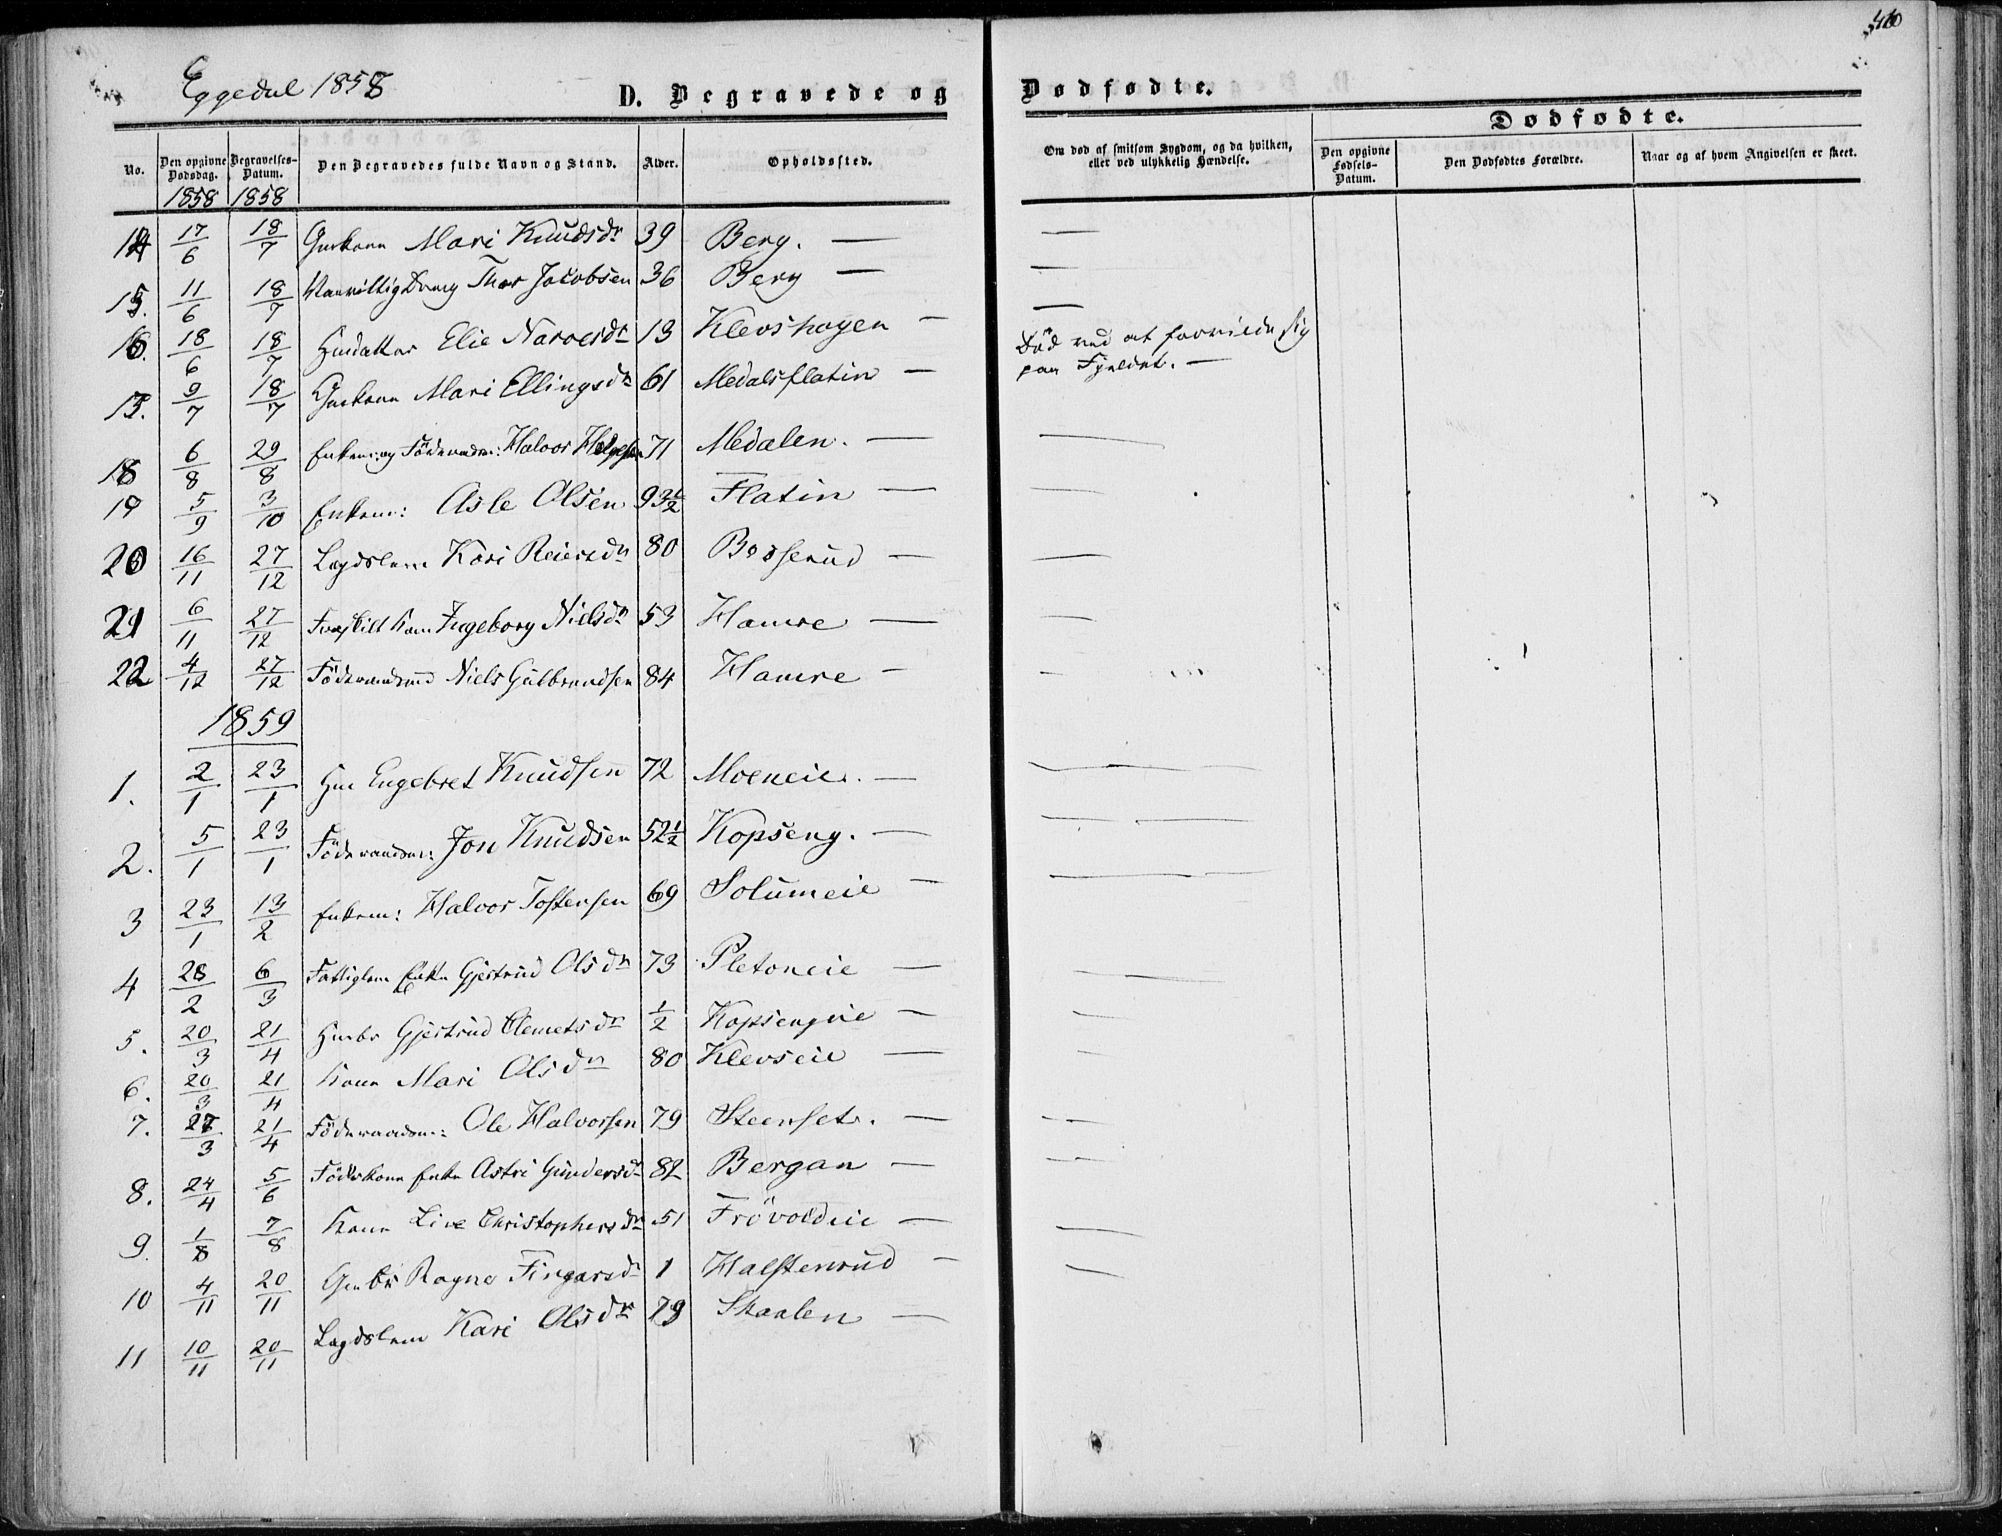 410
Eggedal 1858
D. Begravede og Dødfødte.
Dødfødte.
No. Den opgivne Dødsdag. Begravelses-Datum. Den Begravedes fulde Navn og Stand. Alder. Opholdssted. Om død af smitsom Sygdom, og da hvilken, eller ved ulykkelig Hændelse. Den opgivne Fødsels-Datum. Den Dødfødtes Forældre. Naar og af hvem Angivelsen er skeet.
1858 1858
14 17/6 18/7 Gmkone Mari Knudsdr 39 Berg. —
15. 11/6 18/7 Vanvittig Dreng Thor Jacobsen 36 Berg —
16. 18/6 18/7 Hmdatter Elie Narvesdr 13 Klevshagen — Död ved at forvilde sig
paa Fjeldet. —
17. 9/7 18/7 Gmkone Mari Ellingsdr 61 Medalsflatin —
18 6/8 29/8 Enkem: og Föderaadm: Halvor Helgesen 71 Medalen. —
19 5/9 3/10 Enkem: Asle Olsen 93 1/2 Flatin —
20 16/11 27/12 Lægdslem Kari Reiersdr 80 —
21 6/11 27/12 Fraskilt Kone Ingeborg Nielsdr 53 Hamre —
22 4/12 27/12 Föderaadsmd Niels Gulbrandsen 84 Hamre —
1859
1. 2/1 23/1 Hm Engebret Knudsen 72 Moeneie. —
2. 5/1 23/1 Föderaadsm: Jon Knudsen 52 1/2 Kopseng. —
3 23/1 13/2 Enkem: Halvor Tostensen 69 Solumeie —
4 28/2 6/3 Fattiglem Enke Gjertrud Olsdr 73 Pletoneie —
5. 20/3 21/4 Hmbr Gjertrud Clemetsdr 1/2 Kopsengeie —
6. 20/3 21/4 Kone Mari Olsdr 80 Klevseie —
7. 27/3 21/4 Föderaadsm: Ole Halvorsen 79 Steenset. —
8. 24/4 5/6 Föderkone Enke Astri Gundersdr 82 Bergan —
9. 1/8 7/8 Kone Live Christophersdr 51 Frövoldeie —
10 4/11 20/11 Gmbr Ragne Fingarsdr 1 Halstenrud —
11 10/11 20/11 Lægdslem Kari Olsdr 79 Skaalen —